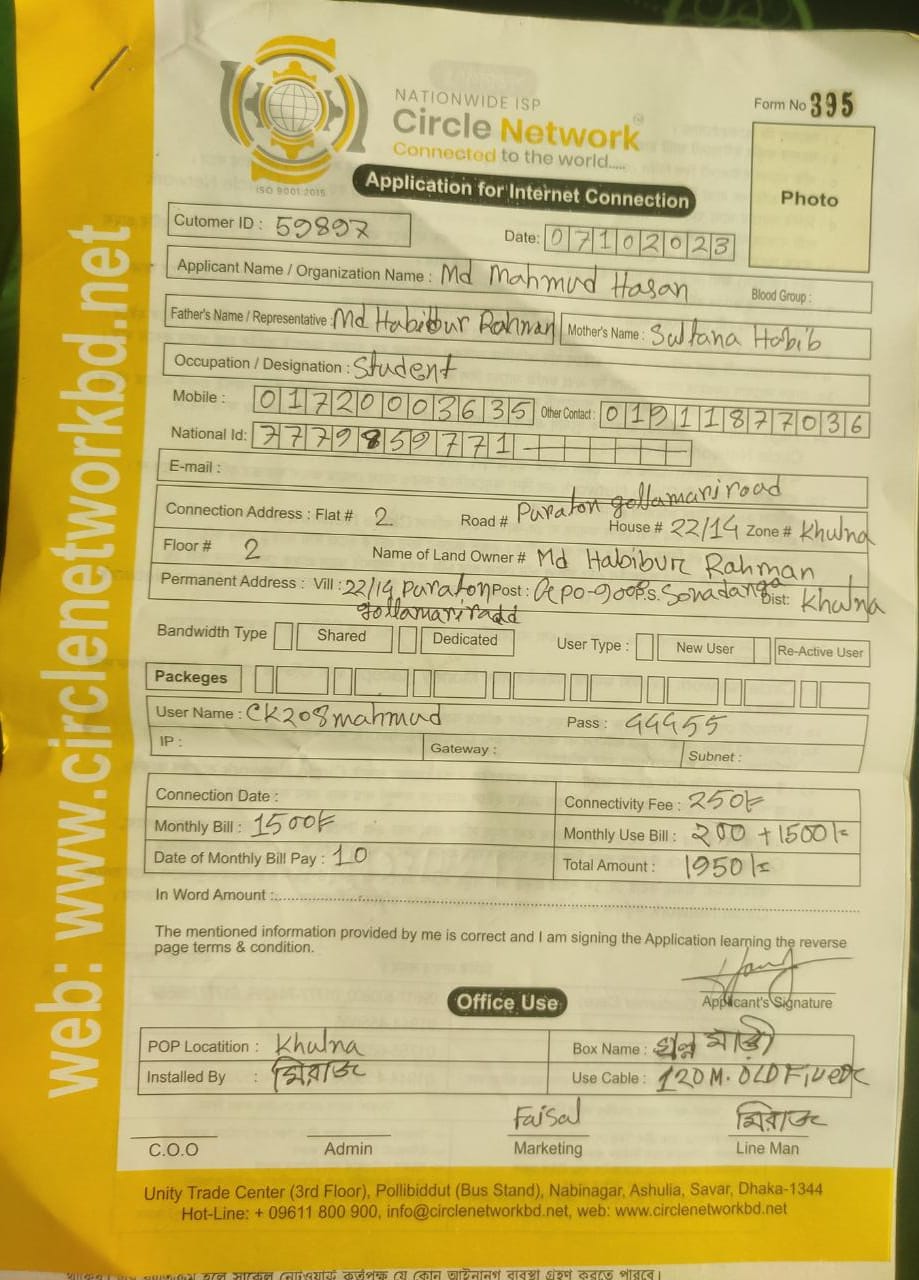 NATIONWIDE ISP
Circle Network
Connected to the world.....
ISO 9001:2015
Form No 395
Photo
Application for Internet Connection
Cutomer ID : 59897
Date: 07102023
Applicant Name / Organization Name : Md Mahmud Hasan Blood Group :
Father's Name / Representative : Md Habibur Rahman Mother's Name : Sultana Habib
Occupation / Designation : Student
Mobile : 01720003635 Other Contact : 01911877036
National Id: 7779859771
E-mail :
Connection Address : Flat # 2 Road # Puraton gollamari road
House # 22/14 Zone # Khulna
Floor # 2 Name of Land Owner # Md Habibur Rahman
Permanent Address : Vill : 22/14 Puraton Post : Gpo-900 P.S. Sonadanga Dist: Khulna
gollamari
Bandwidth Type Shared Dedicated User Type : New User Re-Active User
Packeges
User Name : CK208mahmud Pass : 44455
IP : Gateway : Subnet :
Connection Date : Connectivity Fee : 250/-
Monthly Bill : 1500/- Monthly Use Bill : 200 + 1500/=
Date of Monthly Bill Pay : 10 Total Amount : 1950/=
In Word Amount :
The mentioned information provided by me is correct and I am signing the Application learning the reverse
page terms & condition.
Applicant's Signature
Office Use
POP Locatition : Khulna Box Name :
Installed By : মিরাজ Use Cable : 120M. OLD
Faisal মিরাজ
C.O.O Admin Marketing Line Man
Unity Trade Center (3rd Floor), Pollibiddut (Bus Stand), Nabinagar, Ashulia, Savar, Dhaka-1344
Hot-Line: + 09611 800 900, info@circlenetworkbd.net, web: www.circlenetworkbd.net
web: www.circlenetworkbd.net